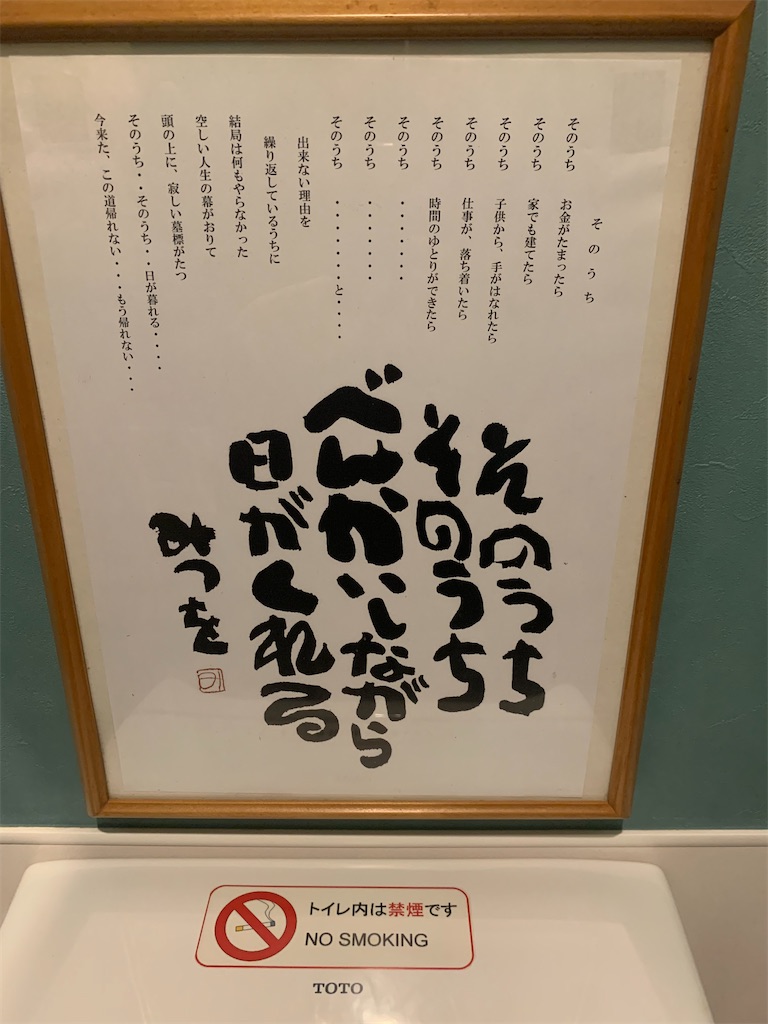 そのうち
そのうち お金がたまったら
そのうち 家でも建てたら
そのうち 子供から、手がはなれたら
そのうち 仕事が、落ち着いたら
そのうち 時間のゆとりができたら
そのうち ・・・・・・・
そのうち ・・・・・・・
そのうち ・・・・・・・と・・・・
出来ない理由を
繰り返しているうちに
結局は何もやらなかった
空しい人生の幕がおりて
頭の上に、寂しい墓標がたつ
そのうち・・そのうち・・日が暮れる・・・・
今来た、この道帰れない・・・・もう帰れない・・・
そのうち
そのうち
べんかいしながら
日がくれる
みつを
トイレ内は禁煙です
NO SMOKING
TOTO